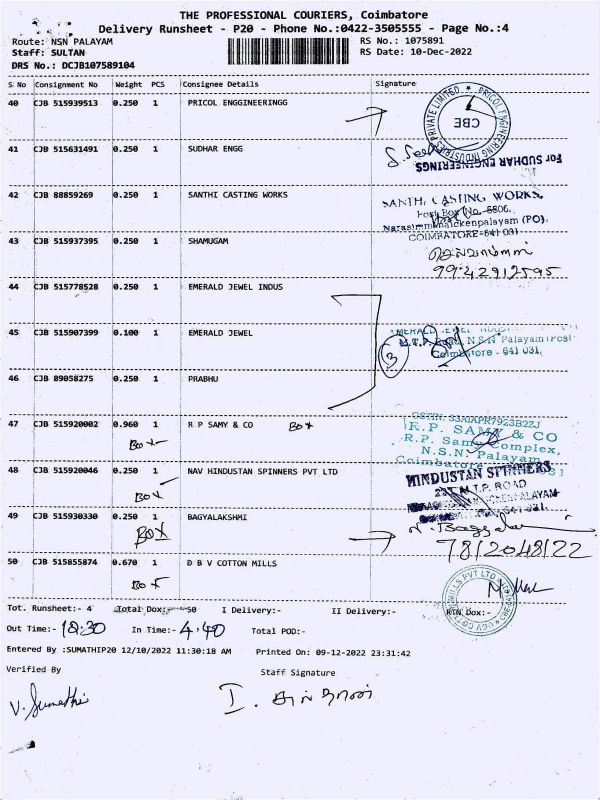 THE PROFESSIONAL COURIERS, Coimbatore
Delivery Runsheet - P20 - Phone No.:0422-3505555 - Page No.:4
Route: NSN PALAYAM RS No.: 1075891
Staff: SULTAN RS Date: 10-Dec-2022
DRS No.: DCJB107589104
S No Consignment No Weight PCS Consignee Details Signature
40 CJB 515939513 0.250 1 PRICOL ENGGINEERINGG
PRICOL ENGINEERING INDUSTRIES PRIVATE LIMITED
CBE
41 CJB 515631491 0.250 1 SUDHAR ENGG
For SUDHAR ENGINEERINGS
42 CJB 88859269 0.250 1 SANTHI CASTING WORKS
SANTHI CASTING WORKS,
Post Box No. 6806,
Narasimmanaickenpalayam (PO),
COIMBATORE-641 031
43 CJB 515937395 0.250 1 SHAMUGAM
9942912595
44 CJB 515778528 0.250 1 EMERALD JEWEL INDUS
45 CJB 515907399 0.100 1 EMERALD JEWEL
3
EMERALD JEWEL
M.T.P. Road, N.S.N Palayam (Post)
Coimbatore - 641 031.
46 CJB 89058275 0.250 1 PRABHU
47 CJB 515920002 0.960 1 R P SAMY & CO BOX
BOX
GSTIN: 33AIAPR7923B2ZJ
R.P. SAMY & CO
R.P. Samy Complex,
N.S.N. Palayam,
Coimbatore
48 CJB 515920046 0.250 1 NAV HINDUSTAN SPINNERS PVT LTD
BOX
HINDUSTAN SPINNERS
M.T.P. ROAD
49 CJB 515930330 0.250 1 BAGYALAKSHMI
BOX
7812048122
50 CJB 515855874 0.670 1 D B V COTTON MILLS
BOX
Tot. Runsheet:- 4 Total Dox:- 50 I Delivery:- II Delivery:- RTN Dox:-
Out Time:- In Time:- 4.40 Total POD:-
Entered By :SUMATHIP20 12/10/2022 11:30:18 AM Printed On: 09-12-2022 23:31:42
Verified By Staff Signature
V. Sumathi I. சுல்தான்